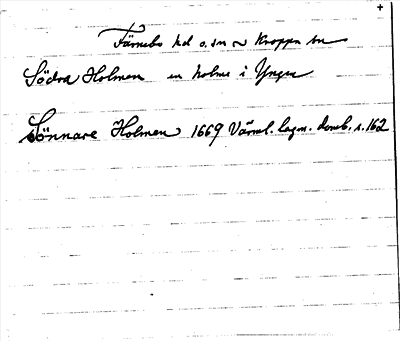 +
Färnebo hd o. sn ~ Kroppa sn
Södra Holmen en holme i Yngen
Sönnare Holmen 1669 Värml. lagm. domb. s. 162